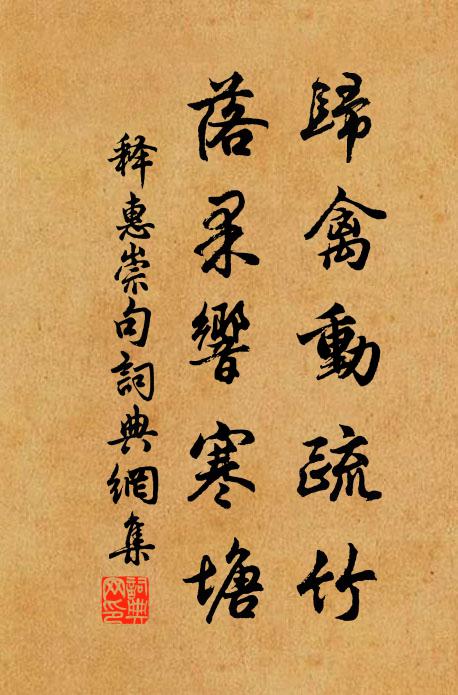 歸禽動疏竹
落果響寒塘
释惠崇句詞典網集
詞典网印